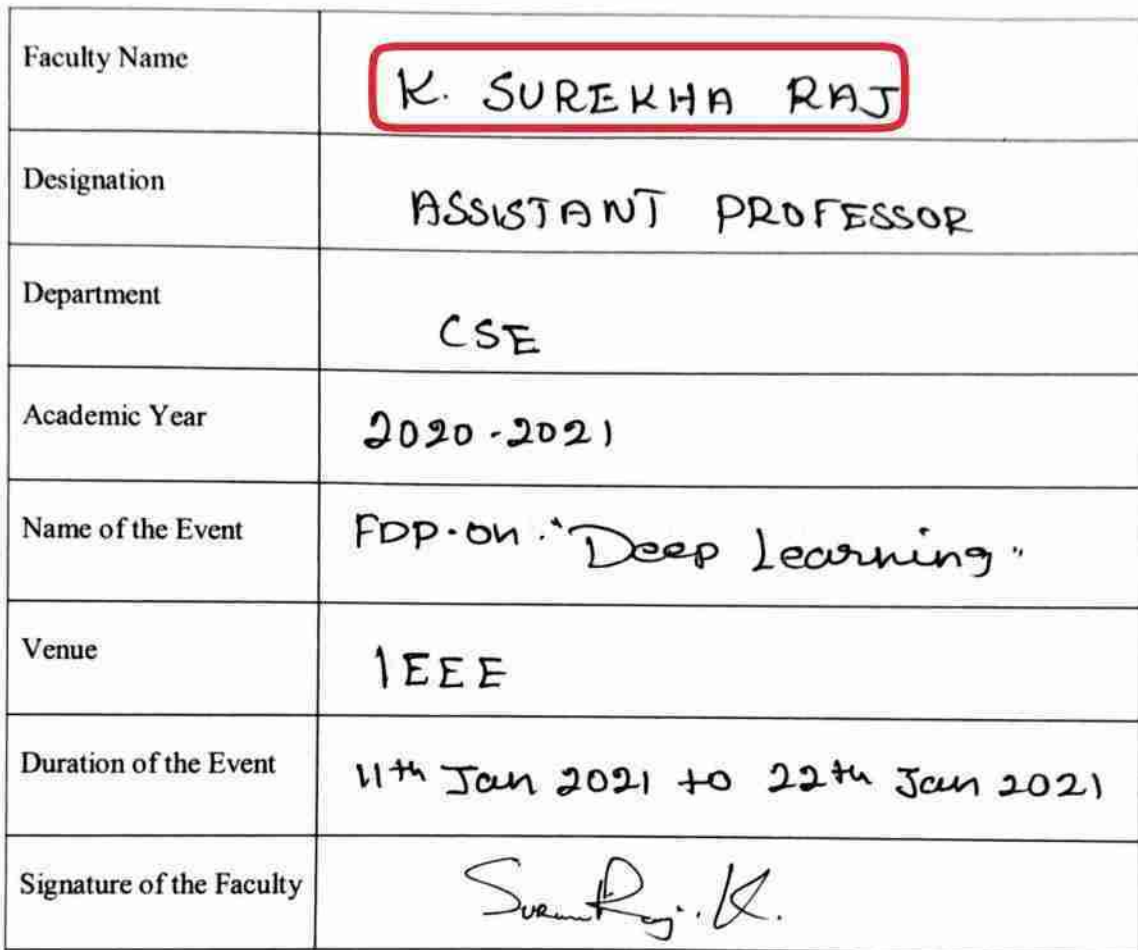 Faculty Name
K. SUREKHA RAJ
Designation
ASSISTANT PROFESSOR
Department
CSE
Academic Year
2020-2021
Name of the Event
FDP-on "Deep Learning"
Venue
IEEE
Duration of the Event
11th Jan 2021 to 22th Jan 2021
Signature of the Faculty
Raj. K.